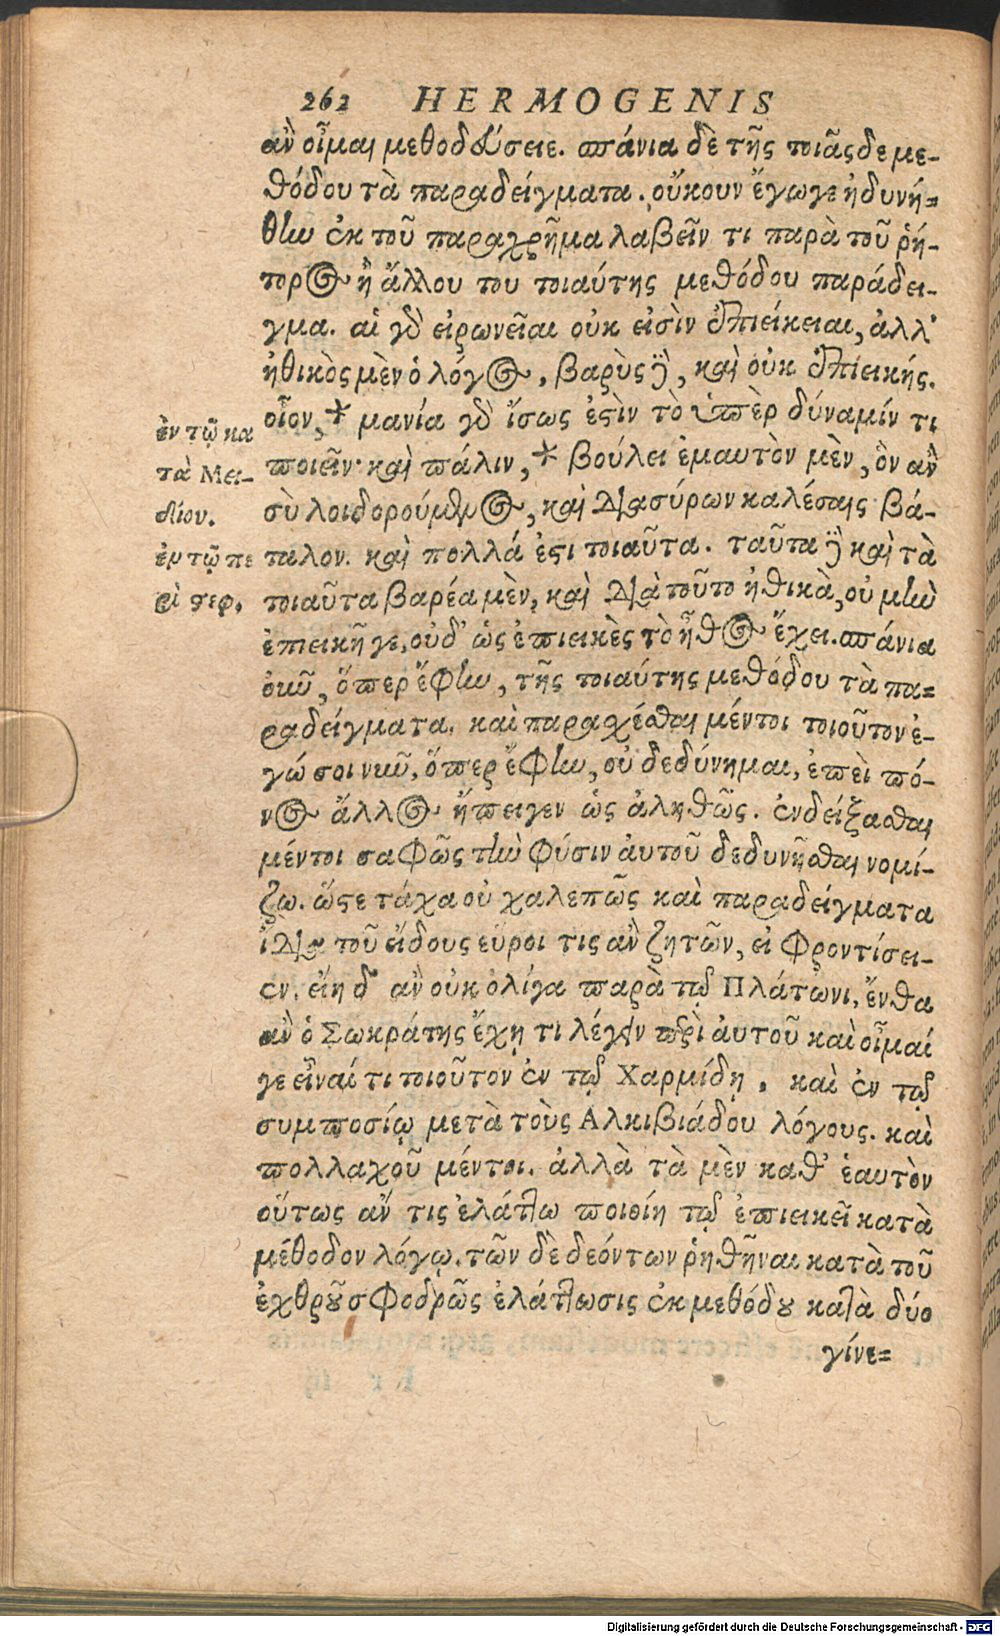 262 HERMOGENIS
ἂν οἶμαι μεθοδεύσειε. σπάνια δὲ τῆς ποιᾶςδε με-
θόδου τὰ παραδείγματα. οὔκουν ἔγωγε ἠδυνή-
θην ἐκ τοῦ παραχρῆμα λαβεῖν τι παρὰ τοῦ ῥή-
τορος ἢ ἄλλου του τοιαύτης μεθόδου παράδει-
γμα. αἱ γὸ εἰρωνεῖαι οὐκ εἰσὶν ἐπιείκειαι, ἀλλ'
ἠθικὸς μὲν ὁ λόγος, βαρὺς ȣ̓͂, καὶ οὐκ ἐπιεικής.
οἷον, * μανία γὸ ἴσως ἐστὶν τὸ ὑπὲρ δύναμίν τι
ποιεῖν· καὶ πάλιν, * βούλει ἐμαυτὸν μὲν, ὃν ἂν
σὺ λοιδορούμενος, καὶ διασύρων καλέσαις βά-
ταλον. καὶ πολλά ἐστι τοιαῦτα. ταῦτα δὲ καὶ τὰ
τοιαῦτα βαρέα μὲν, καὶ διὰ τοῦτο ἠθικὰ, οὐ μὴν
ἐπιεικῆ γε, οὐδ' ὡς ἐπιεικὲς τὸ ἦθος ἔχει. σπάνια
οὖν, ὅπερ ἔφην, τῆς τοιαύτης μεθόδου τὰ πα-
ραδείγματα. καὶ παραχέσθαι μέντοι τοιοῦτον ἐ-
γώ σοι νῦν, ὅπερ ἔφην, οὐ δεδύνημαι, ἐπεὶ πό-
νος ἄλλος ἤπειγεν ὡς ἀληθῶς. ἐνδείξασθαι
μέντοι σαφῶς τὴν φύσιν ἀυτοῦ δεδυνῆσθαι νομί-
ζω. ὥστε τάχα οὐ χαλεπῶς καὶ παραδείγματα
τοῦ εἴδους εὕροι τις ἂν ζητῶν, εἰ φροντίσει-
εν. εἴη δ' ἂν οὐκ ὀλίγα παρὰ τῷ Πλάτωνι, ἔνθα
ἂν ὁ Σωκράτης ἔχῃ τι λέγειν περὶ ἀυτοῦ καὶ οἶμαί
γε εἶναί τι τοιοῦτον ἐν τῷ Χαρμίδῃ, καὶ ἐν τῷ
συμποσίῳ μετὰ τοὺς Αλκιβιάδου λόγους. καὶ
πολλαχοῦ μέντοι. ἀλλὰ τὰ μὲν καθ' ἑαυτὸν
οὕτως ἄν τις ἐλάττω ποιοίη τῷ ἐπιεικεῖ κατὰ
μέθοδον λόγῳ. τῶν δὲ δεόντων ῥηθῆναι κατὰ τοῦ
ἐχθροῦ σφοδρῶς ἐλάττωσις ἐκ μεθόδου κατὰ δύο
γίνε-
ἐν τῷ κα
τὰ Μει-
δίου.
ἐν τῷ πε
ρὶ στεφ.
Digitalisierung gefördert durch die Deutsche Forschungsgemeinschaft - DFG